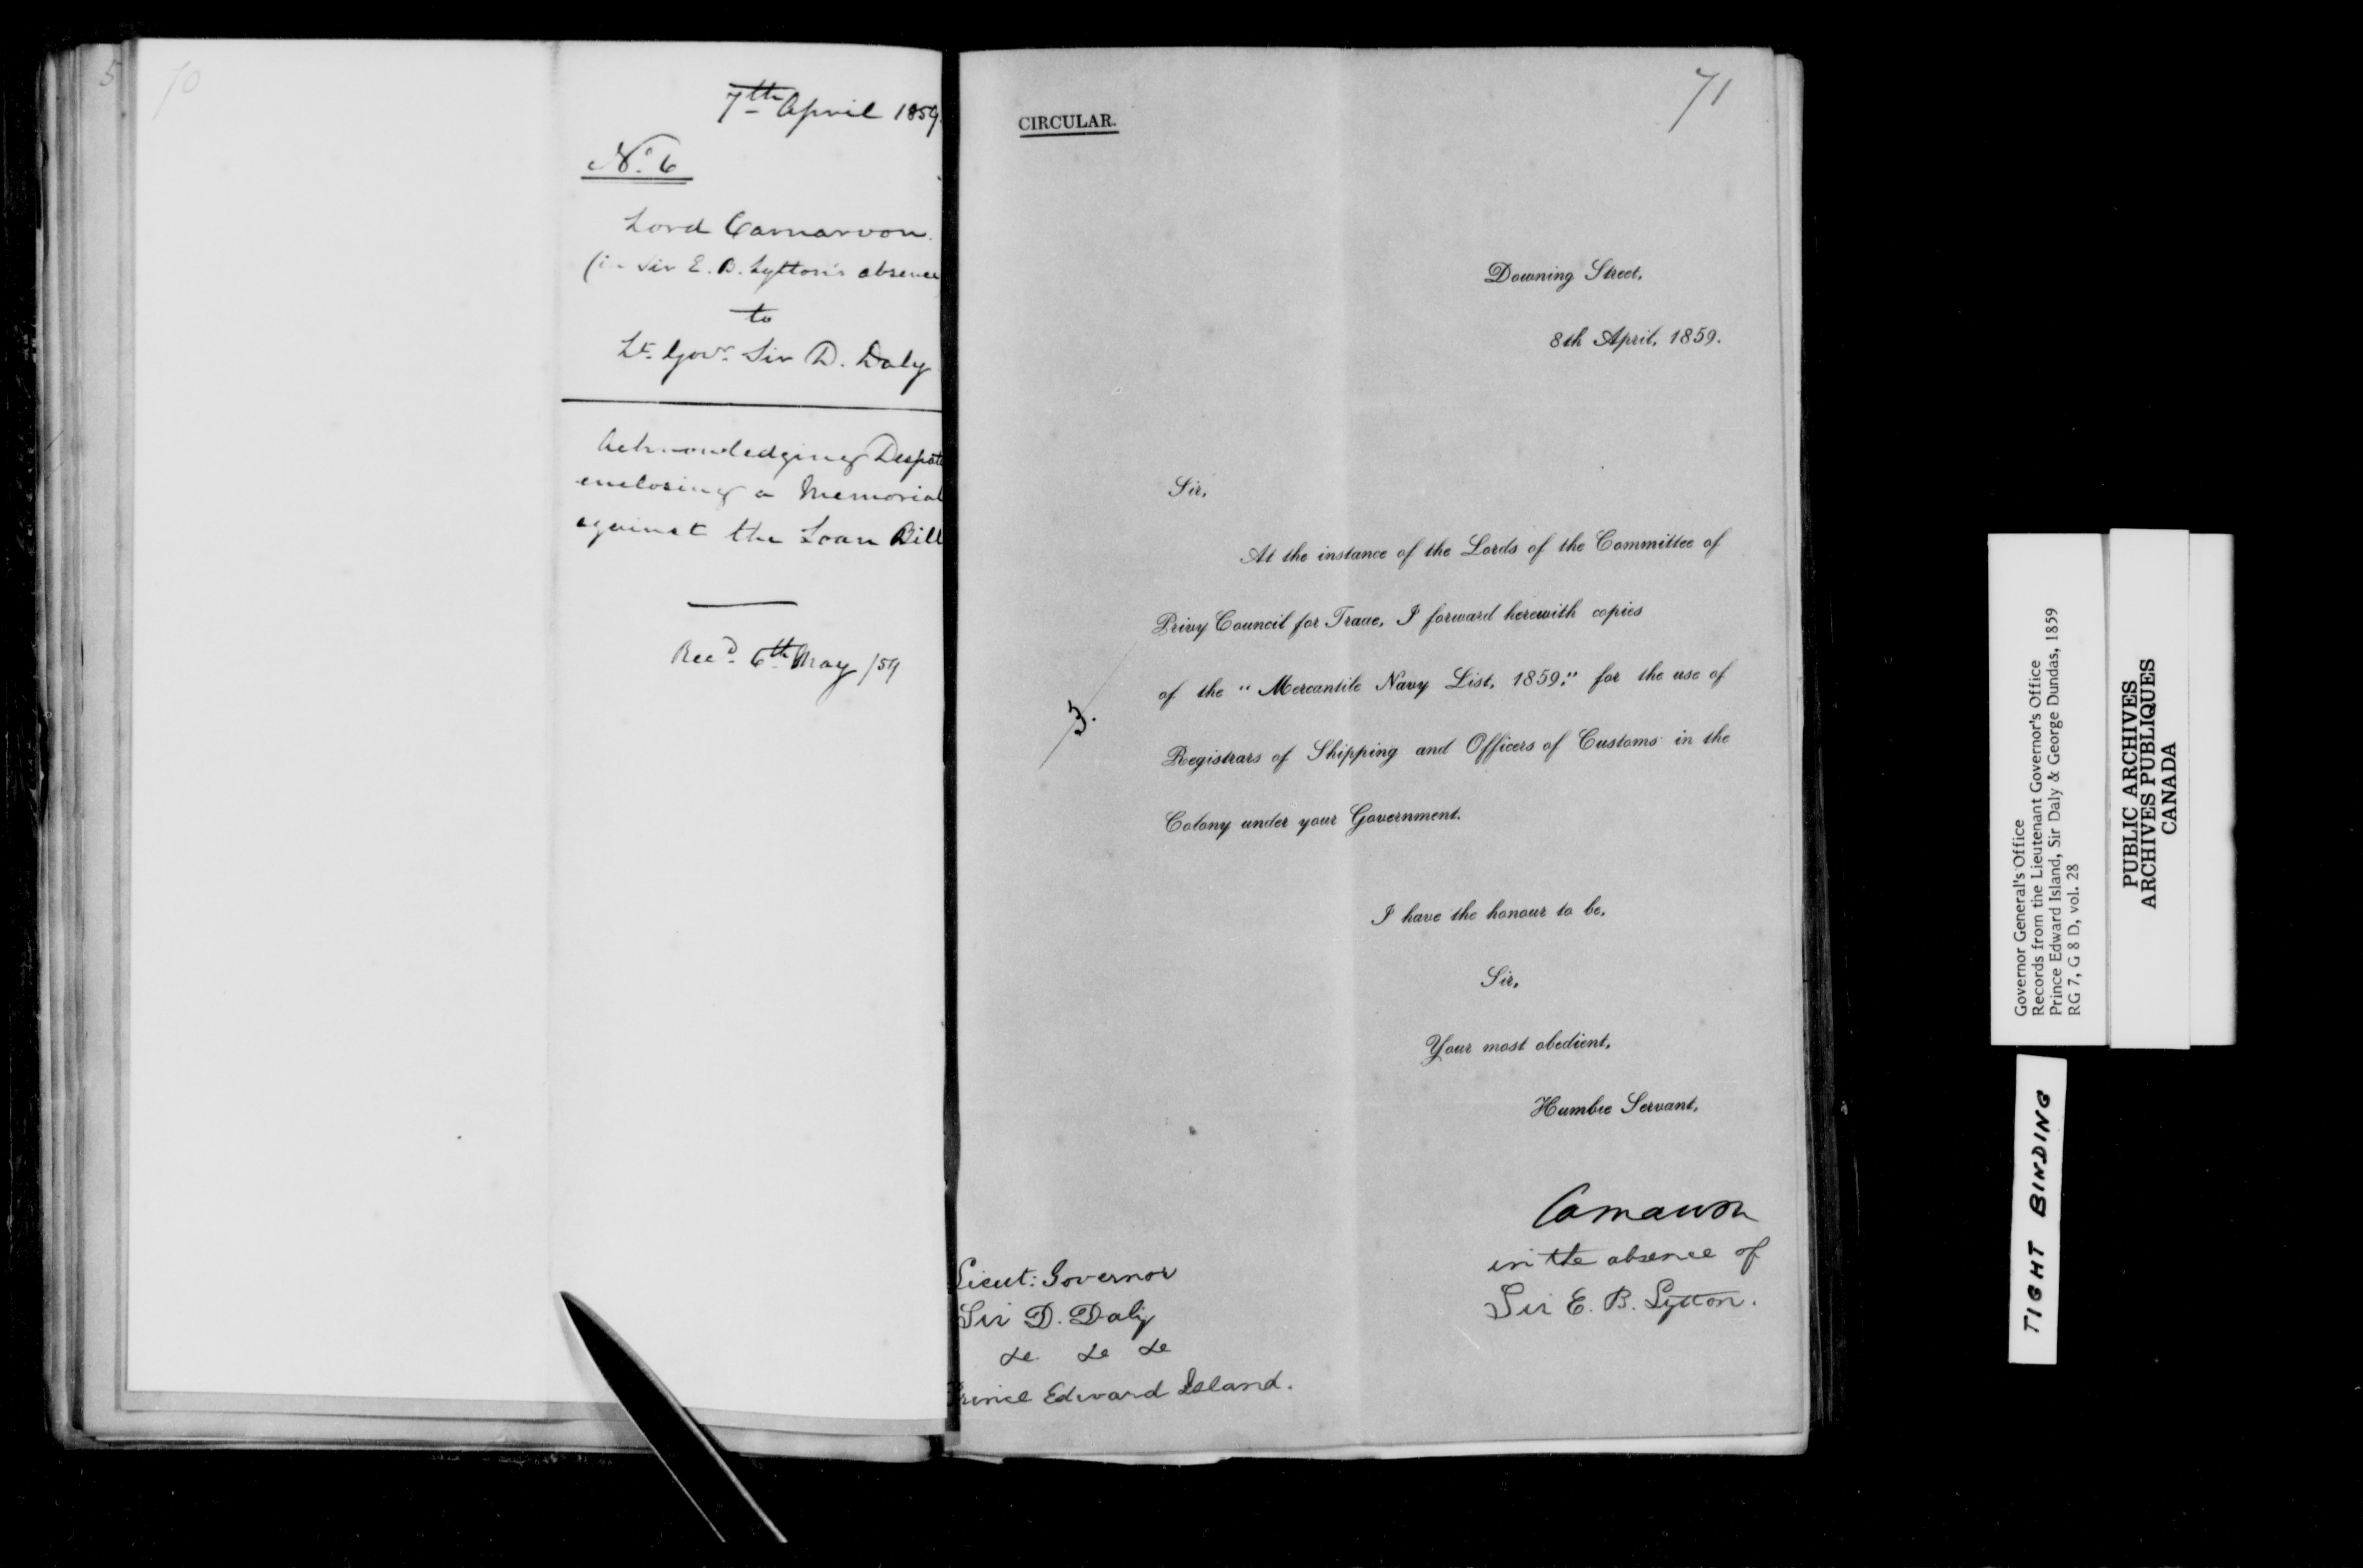 5
70
7th April 1859.
No. 6
Lord Carnarvon.
(in Sir E. B. Lytton's absence
to
Lt. Govr. Sir D. Daly
Acknowledging Despatc
enclosing a Memorial
against the Loan Bill
Recd. 6th May /59
71
CIRCULAR.
Downing Street,
8th April, 1859.
Sir,
At the instance of the Lords of the Committee of
Privy Council for Trade, I forward herewith copies
of the "Mercantile Navy List, 1859," for the use of
3.
Registrars of Shipping and Officers of Customs in the
Colony under your Government.
I have the honour to be,
Sir,
Your most obedient,
Humble Servant,
Carnarvon
in the absence of
Sir E. B. Lytton.
Lieut: Governor
Sir D. Daly
&c &c &c
Prince Edward Island.
Governor General's Office
Records from the Lieutenant Governor's Office
Prince Edward Island, Sir Daly & George Dundas, 1859
RG 7, G 8 D, vol. 28
PUBLIC ARCHIVES
ARCHIVES PUBLIQUES
CANADA
TIGHT BINDING